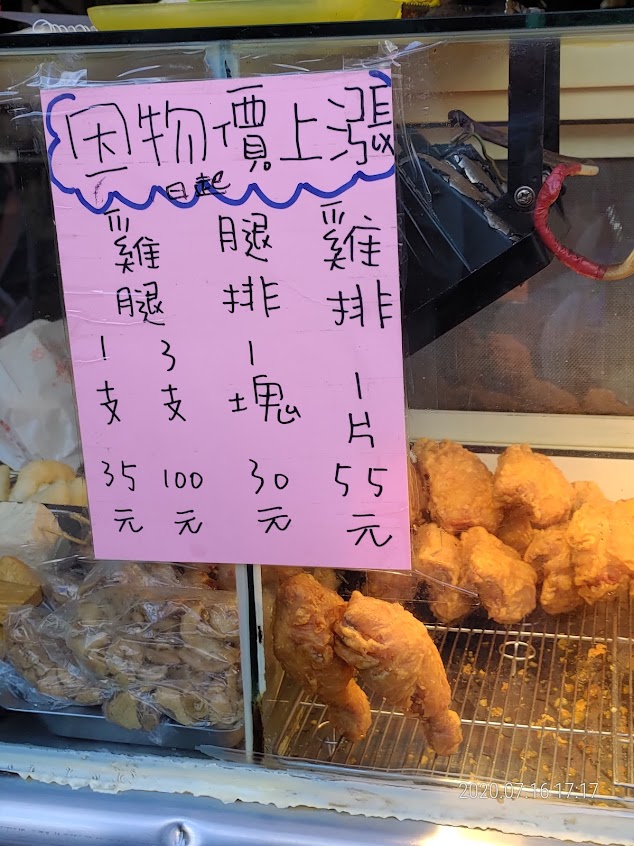 因物價上漲
日起
雞腿
1支 35元
3支 100元
腿排
1塊 30元
雞排
1片 55元
2020.07.16 17:17